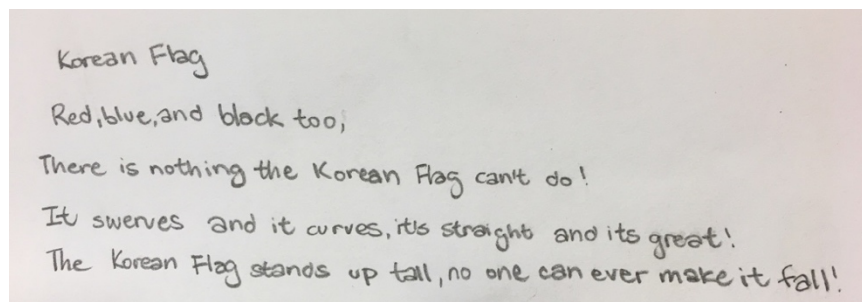 Korean Flag
Red, blue, and black too,
There is nothing the Korean Flag can't do!
It swerves and it curves, it's straight and its great!
The Korean Flag stands up tall, no one can ever make it fall!